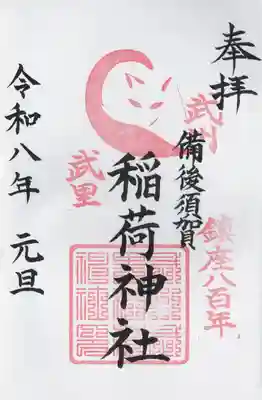 奉拝
武州
鎮座八百年
備後須賀
稲荷神社
武里
令和八年 元旦